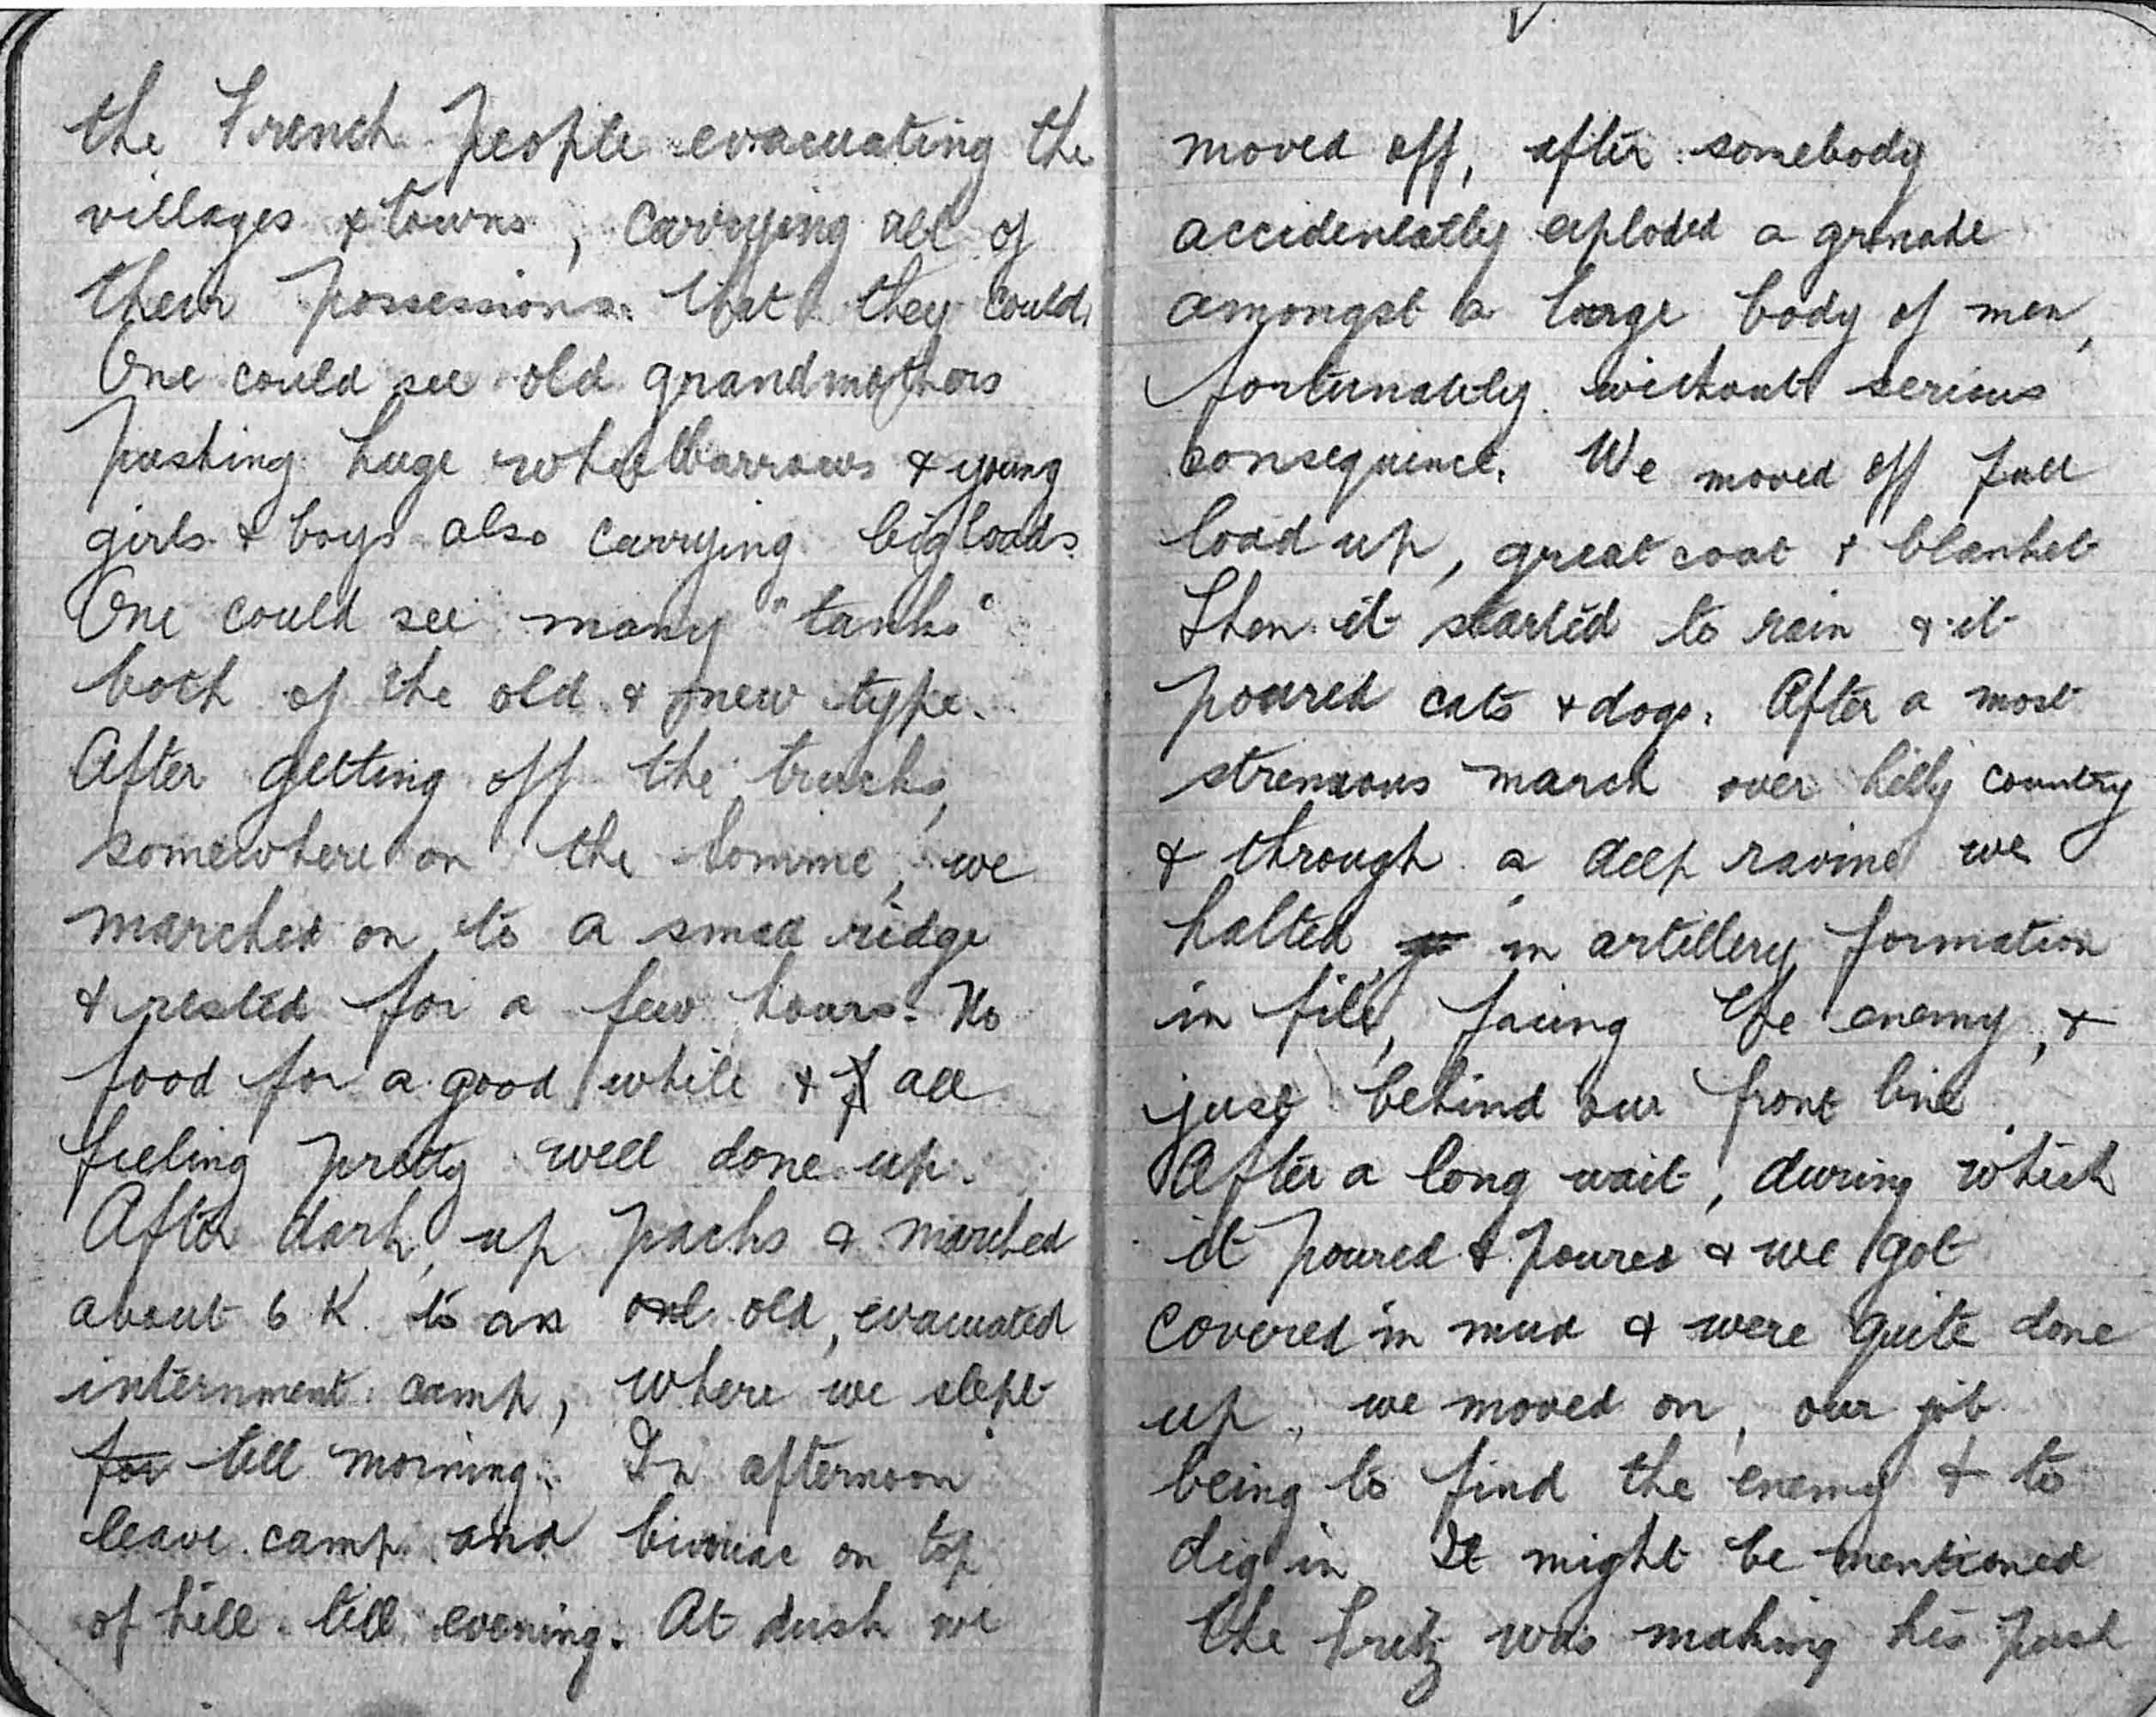 the French people evacuating the
villages & towns, carrying all of
their possessions that they could.
One could see old grandmothers
pushing huge wheelbarrows & young
girls & boys also carrying big loads.
One could see many "tanks"
both of the old & new type.
After getting off the trucks,
somewhere on the Somme, we
marched on to a small ridge
& rested for a few hours. No
food for a good while & all
feeling pretty well done up.
After dark, up packs & marched
about 6 K. to an old, evacuated
internment camp, where we slept
for till morning. In afternoon
leave camp and bivouac on top
of hill till evening. At dusk we
moved off, after somebody
accideneatly exploded a grenade
amongst a large body of men,
fortunately without serious
consequence. We moved off full
load up, great coat & blanket
Then it started to rain & it
poured cats & dogs. After a most
strenuous march over hilly country
& through a deep ravine we
halted, in artillery formation
in file, facing the enemy, &
just behind our front line.
After a long wait, during which
it poured & poured & we got
covered in mud & were quite done
up, we moved on, our job
being to find the enemy & to
dig in. It might be mentioned
the Fritz was making his push